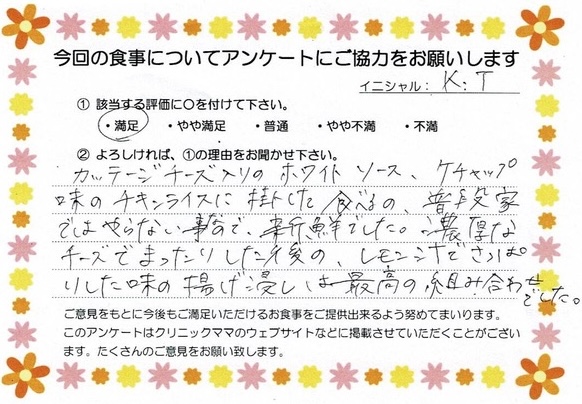 今回の食事についてアンケートにご協力をお願いします
イニシャル： K.T
① 該当する評価に○を付けて下さい。
・満足 ・やや満足 ・普通 ・やや不満 ・不満
② よろしければ、①の理由をお聞かせ下さい。
カッテージチーズ入りのホワイトソース、ケチャップ
味のチキンライスに掛けて食べるの、普段家
ではやらない事なので、新鮮でした。濃厚な
チーズでまったりした後の、レモン汁でさっぱ
りした味の揚げ浸しは最高の組み合わせでした。
ご意見をもとに今後もご満足いただけるお食事をご提供出来るよう努めてまいります。
このアンケートはクリニックママのウェブサイトなどに掲載させていただくことがござい
ます。たくさんのご意見をお願い致します。